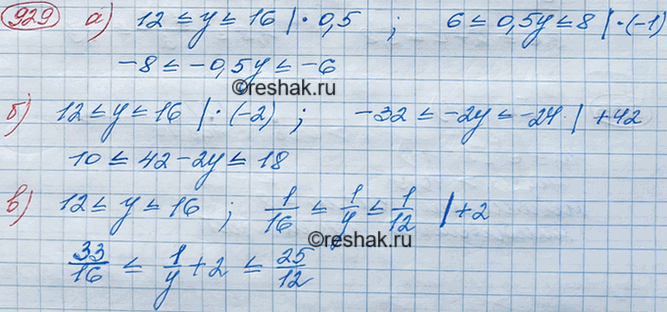 929 а) 12 ≤ y ≤ 16 | · 0,5 ; 6 ≤ 0,5y ≤ 8 | · (-1)
-8 ≤ -0,5y ≤ -6
©reshak.ru
б) 12 ≤ y ≤ 16 | · (-2) ; -32 ≤ -2y ≤ -24 | +42
10 ≤ 42 - 2y ≤ 18
в) 12 ≤ y ≤ 16 ; 1/16 ≤ 1/y ≤ 1/12 | +2
©reshak.ru
33/16 ≤ 1/y + 2 ≤ 25/12